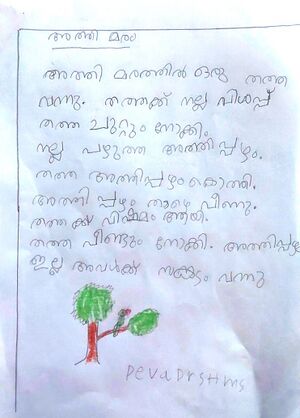 അത്തി മരം
അത്തി മരത്തിൽ ഒരു തത്ത
വന്നു. തത്തക്ക് നല്ല വിശപ്പ്
തത്ത ചുറ്റും നോക്കി.
നല്ല പഴുത്ത അത്തിപ്പഴം.
തത്ത അത്തിപ്പഴം കൊത്തി.
അത്തിപ്പഴം താഴെ വീണു.
തത്തക്ക് വിഷമം ആയി.
തത്ത വീണ്ടും നോക്കി. അത്തിപ്പഴം
ഇല്ല അവൾക്ക് സങ്കടം വന്നു
DevaDrsHms